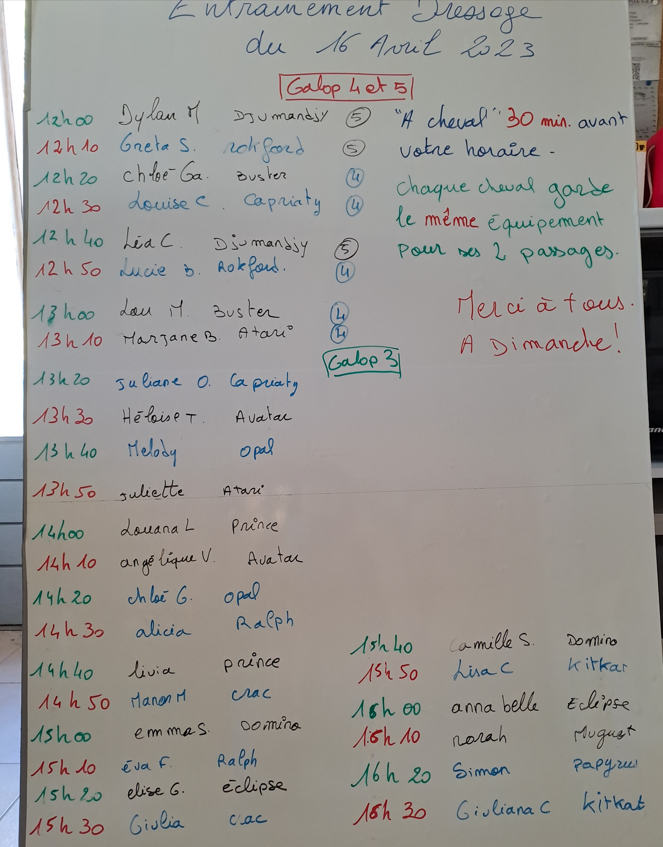 Entrainement Dressage
du 16 Avril 2023
Galop 4 et 5
12h00 Dylan M Djumandjy 5
12h10 Greta S. Rokford 5
12h20 Chloé Ga. Buster 4
12h30 Louise C. Capriaty 4
12h40 Léa C. Djumandjy 5
12h50 Lucie B. Rokford. 4
13h00 Lou M. Buster 4
13h10 Marjane B. Atari 4
"A cheval" 30 min. avant
votre horaire -
chaque cheval garde
le même équipement
pour ses 2 passages.
Merci à tous.
A Dimanche!
Galop 3
13h20 Juliane O. Capriaty
13h30 Héloïse T. Avatar
13h40 Melody Opal
13h50 Juliette Atari
14h00 Louana L Prince
14h10 angélique V. Avatar
14h20 chloé G. Opal
14h30 alicia Ralph
14h40 livia prince
14h50 Manon M crac
15h00 emma S. Domino
15h10 Éva F. Ralph
15h20 elise G. Éclipse
15h30 Giulia crac
15h40 Camille S. Domino
15h50 Lisa C Kitkat
16h00 anna belle Eclipse
16h10 norah Muguet
16h20 Simon Papyrus
16h30 Giuliana C Kitkat